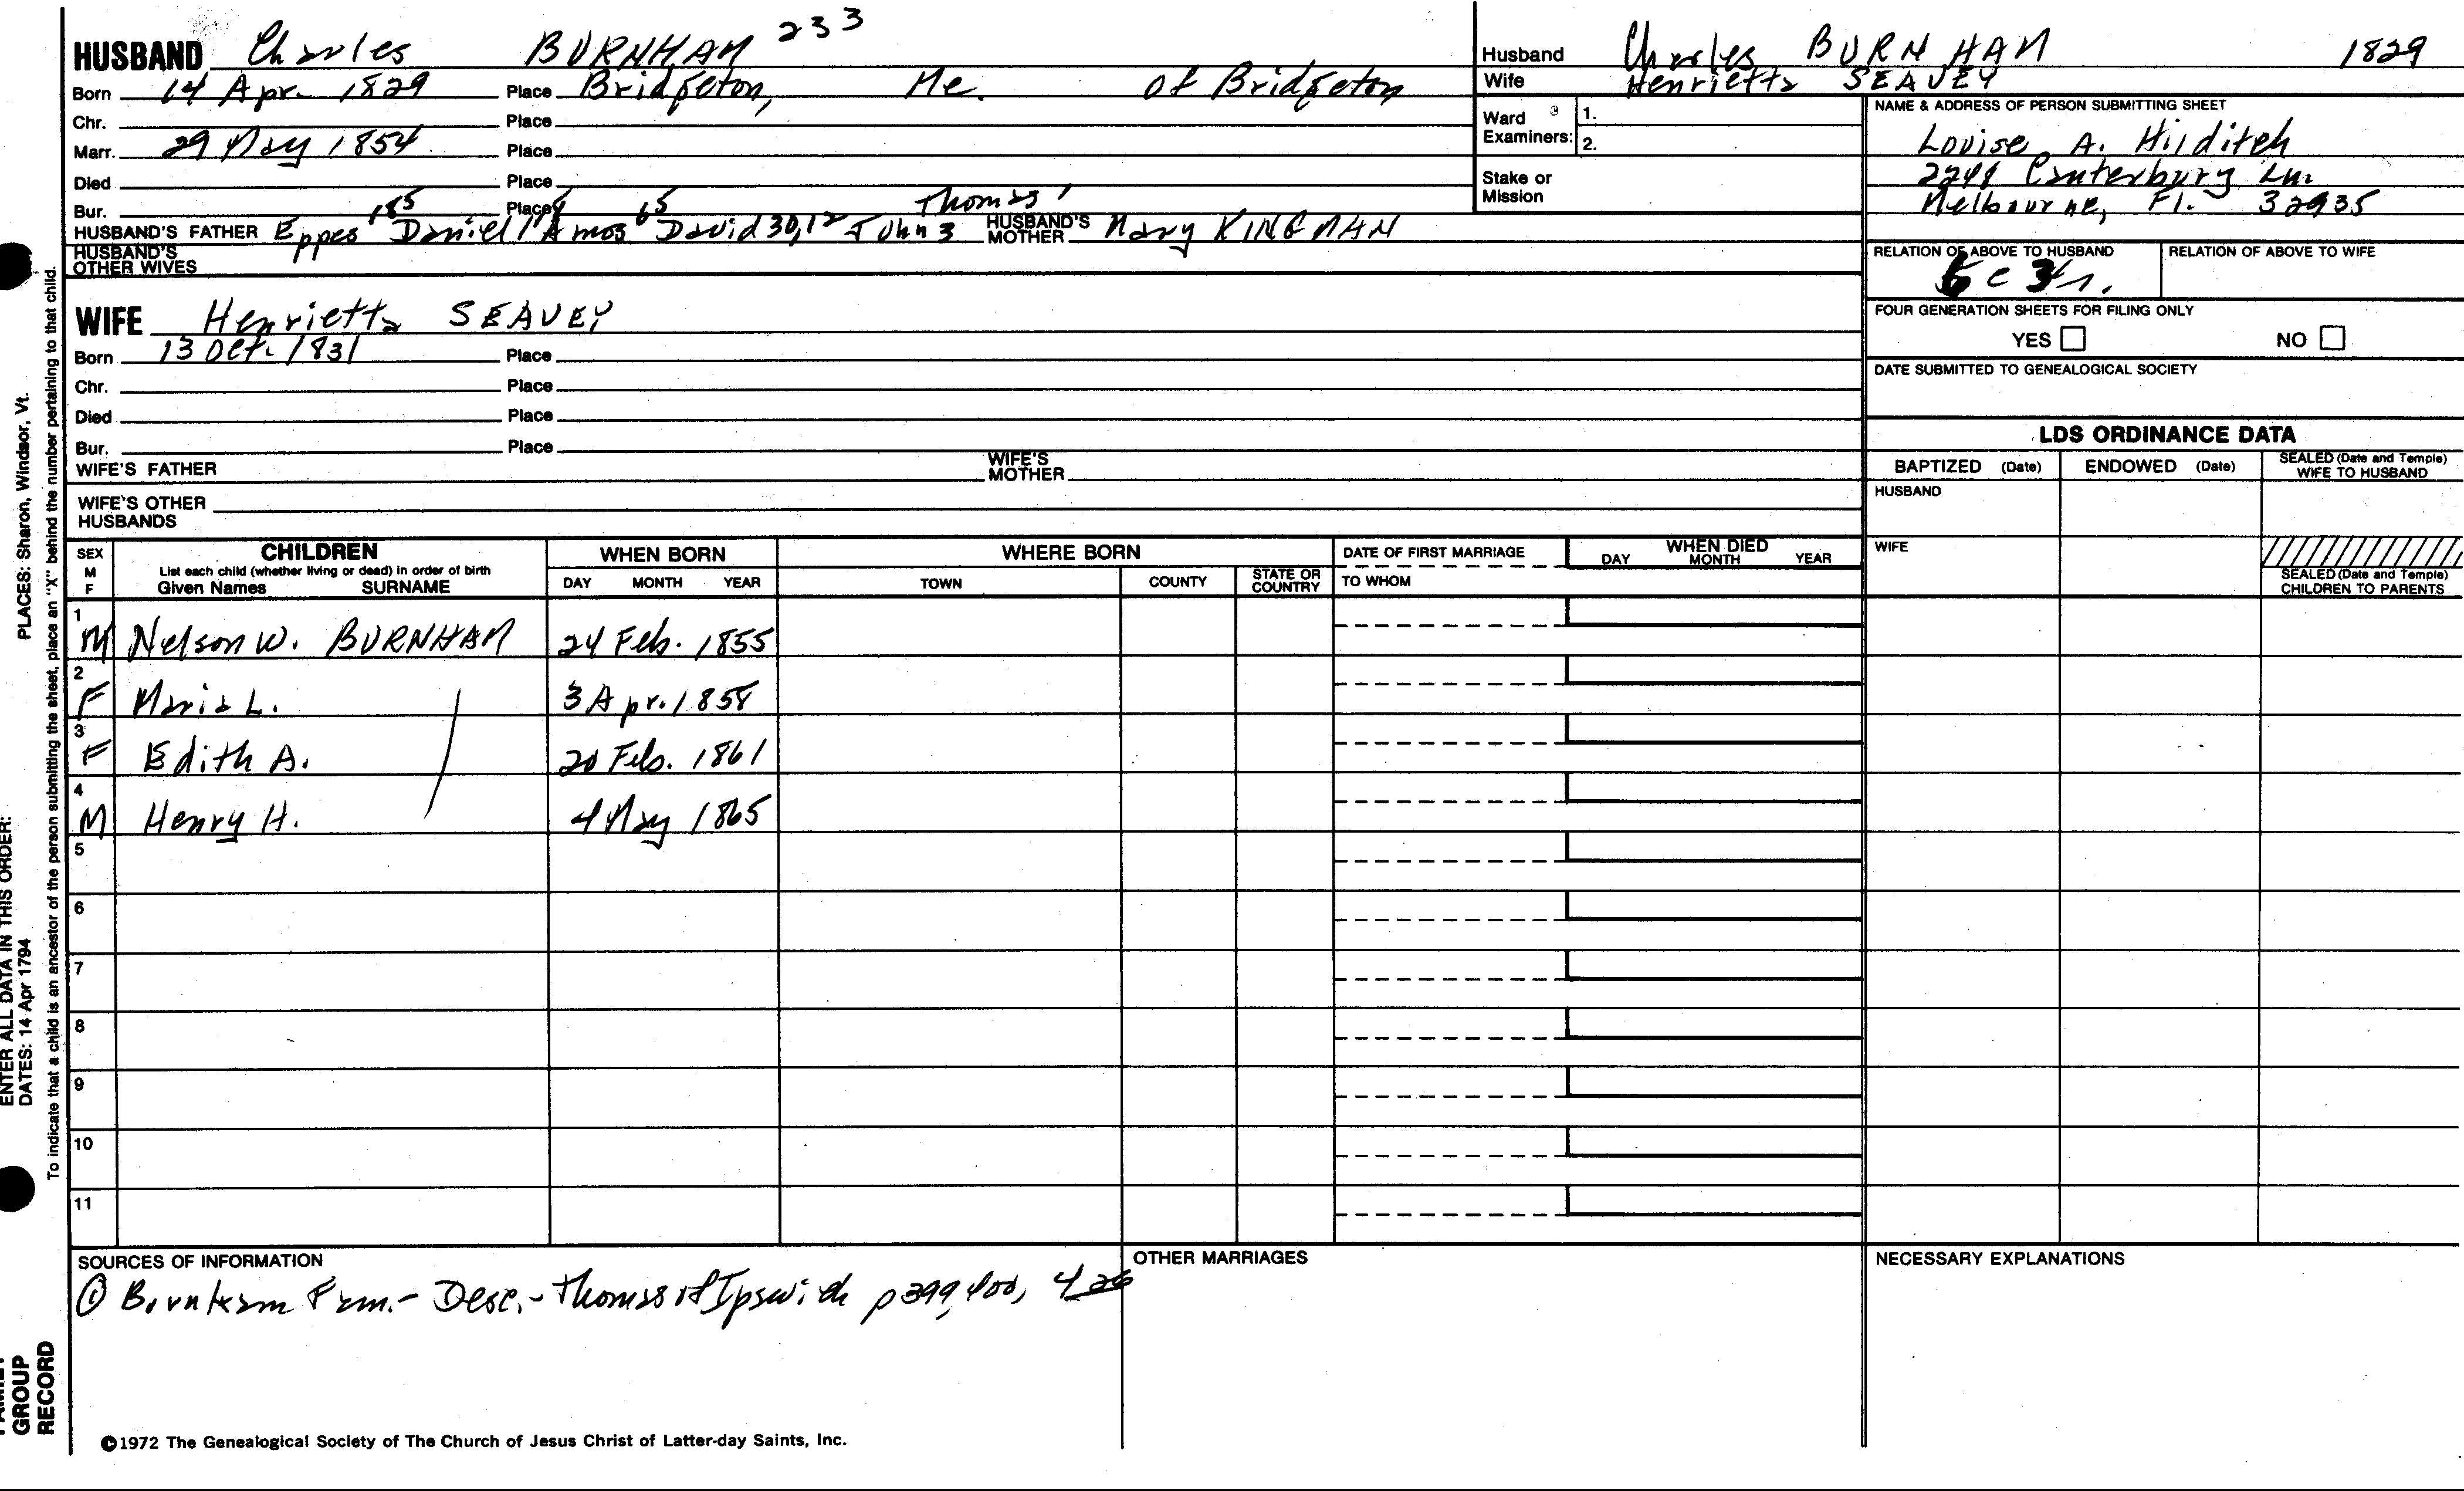 HUSBAND Charles BURNHAM 233
Born 14 Apr. 1829 Place Bridgeton, Me. of Bridgeton
Chr. Place
Marr. 29 May 1854 Place
Died Place
Bur. Place
185 65 Thomas 1
HUSBAND'S FATHER Eppes Daniel Amos David 30,12 John 3 HUSBAND'S MOTHER Mary KINGMAN
HUSBAND'S OTHER WIVES
WIFE Henrietta SEAVEY
Born 13 Oct. 1831 Place
Chr. Place
Died Place
Bur. Place
WIFE'S FATHER WIFE'S MOTHER
WIFE'S OTHER HUSBANDS
Husband Charles BURNHAM 1829
Wife Henrietta SEAVEY
Ward Examiners: 1.
2.
Stake or Mission
NAME & ADDRESS OF PERSON SUBMITTING SHEET
Louise A. Hilditch
2248 Canterbury Ln.
Melbourne, Fl. 32935
RELATION OF ABOVE TO HUSBAND RELATION OF ABOVE TO WIFE
FOUR GENERATION SHEETS FOR FILING ONLY
YES NO
DATE SUBMITTED TO GENEALOGICAL SOCIETY
LDS ORDINANCE DATA
BAPTIZED (Date) ENDOWED (Date) SEALED (Date and Temple) WIFE TO HUSBAND
HUSBAND
WIFE
SEALED (Date and Temple) CHILDREN TO PARENTS
SEX M F CHILDREN WHEN BORN WHERE BORN DATE OF FIRST MARRIAGE WHEN DIED
List each child (whether living or dead) in order of birth
Given Names SURNAME DAY MONTH YEAR TOWN COUNTY STATE OR COUNTRY TO WHOM DAY MONTH YEAR
1 M Nelson W. BURNHAM 24 Feb. 1855
2 F Maria L. 3 Apr. 1858
3 F Edith A. 20 Feb. 1861
4 M Henry H. 4 May 1865
5
6
7
8
9
10
11
SOURCES OF INFORMATION
① Burnham Fam.- Desc.- Thomas of Ipswich p 399, 400, 426
OTHER MARRIAGES
NECESSARY EXPLANATIONS
©1972 The Genealogical Society of The Church of Jesus Christ of Latter-day Saints, Inc.
PLACES: Sharon, Windsor, Vt.
ENTER ALL DATA IN THIS ORDER:
DATES: 14 Apr 1794
To indicate that a child is an ancestor of the person submitting the sheet, place an "X" behind the number pertaining to that child.
GROUP
RECORD